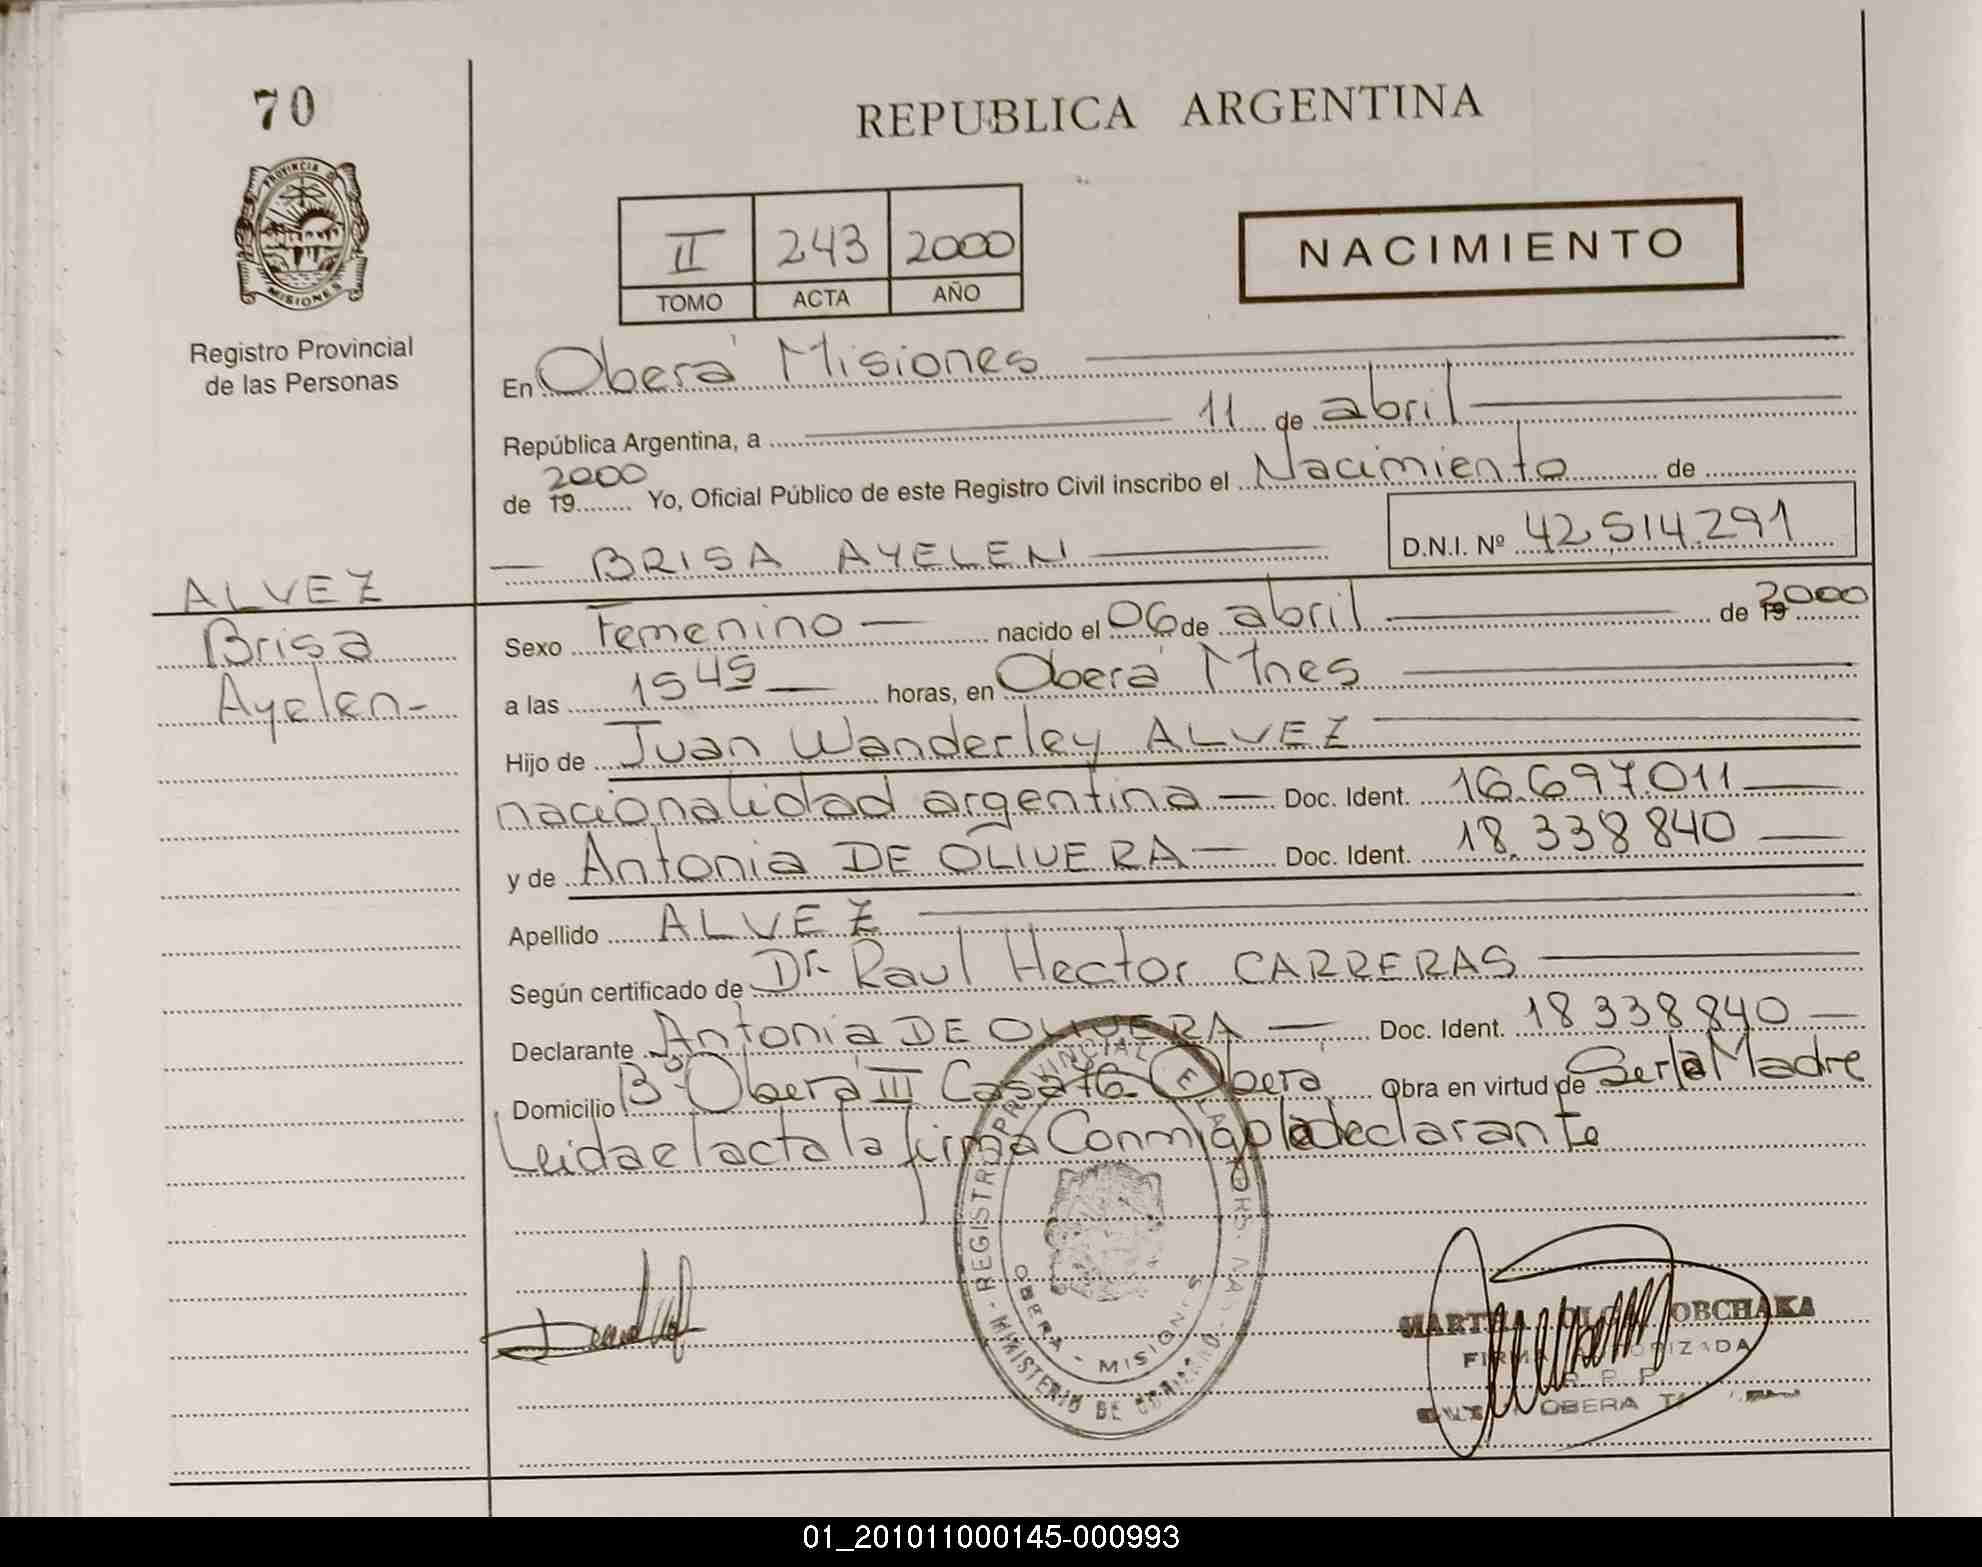 70
REPUBLICA ARGENTINA
PROVINCIA DE
MISIONES
Registro Provincial
de las Personas
II 243 2000
TOMO ACTA AÑO
NACIMIENTO
En Oberá Misiones
República Argentina, a 11 de abril
de 19 2000 Yo, Oficial Público de este Registro Civil inscribo el Nacimiento de
BRISA AYELEN D.N.I. Nº 42.514.291
ALVEZ
Brisa
Ayelen-
Sexo Femenino nacido el 06 de abril de 19 2000
a las 15 45 horas, en Oberá Mnes
Hijo de Juan Wanderley ALVEZ
nacionalidad argentina Doc. Ident. 16.697.011
y de Antonia DE OLIVERA Doc. Ident. 18.338840
Apellido ALVEZ
Según certificado de Dr. Raul Hector CARRERAS
Declarante Antonia DE OLIVERA Doc. Ident. 18338840
Domicilio Bº Oberá III Casa 76 Oberá Obra en virtud de Ser la Madre
Leida el acta la firma Conmigo la declarante
REGISTRO PROVINCIAL DE LAS PERS.
OBERA - MISIONES
MINISTERIO DE GOBIERNO
MARTHA OBCHAKA
FIRMA AUTORIZADA
R. R. P.
OBERA
01_201011000145-000993